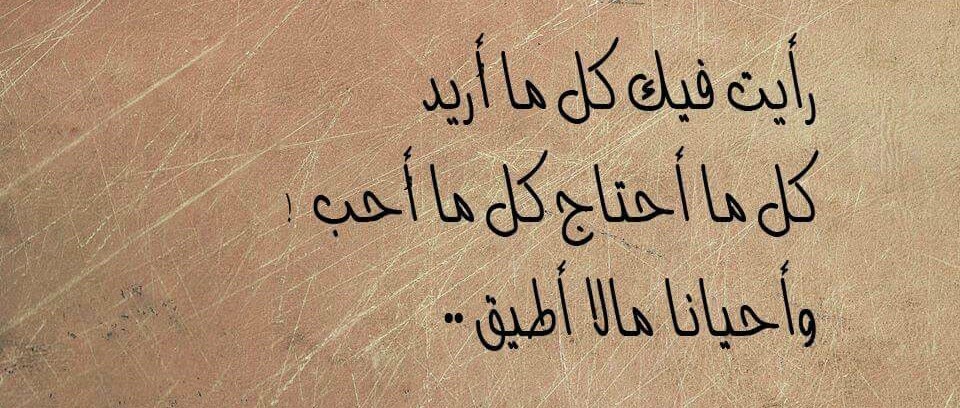 رأيت فيك كل ما أريد
كل ما أحتاج كل ما أحب !
وأحيانا مالا أطيق ..